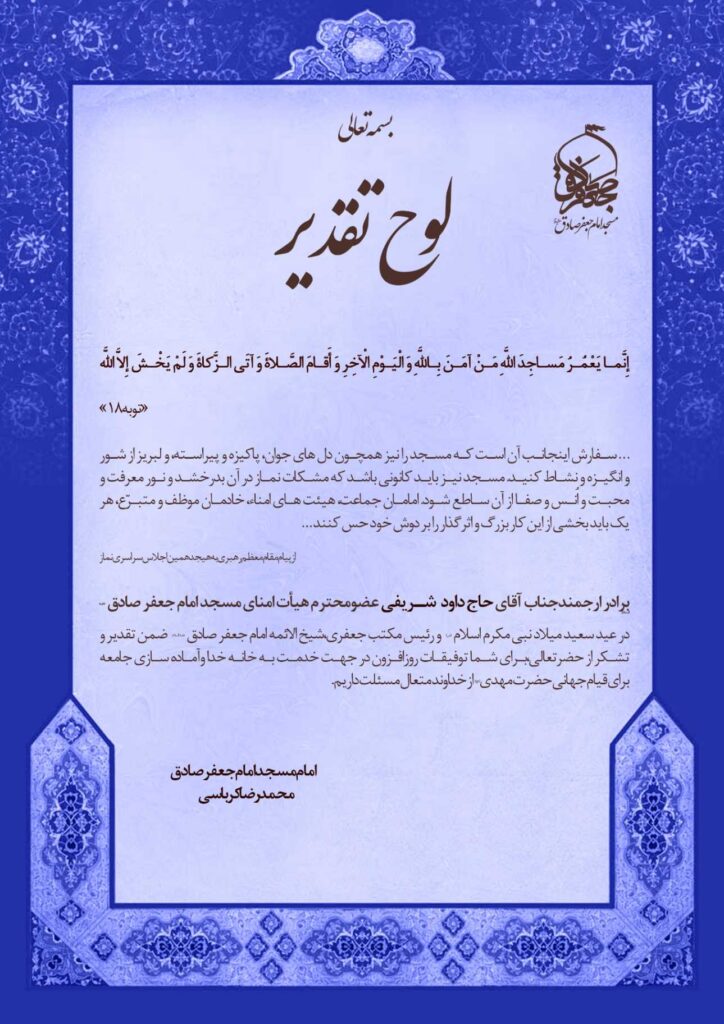 بسمه تعالی
لوح تقدیر
جعفر صادق
مسجد امام جعفر صادق
إِنَّما يَعْمُرُ مَساجِدَ اللَّهِ مَنْ آمَنَ بِاللَّهِ وَ الْيَوْمِ الْآخِرِ وَ أَقامَ الصَّلاةَ وَ آتَى الزَّكاةَ وَ لَمْ يَخْشَ إِلاَّ اللَّه
«توبه ۱۸»
...سفارش اینجانب آن است که مسجد را نیز همچون دل های جوان، پاکیزه و پیراسته، و لبریز از شور
و انگیزه و نشاط کنید. مسجد نیز باید کانونی باشد که مشکات نماز در آن بدرخشد و نور معرفت و
محبت و اُنس و صفا از آن ساطع شود. امامان جماعت، هیئت های امناء، خادمان موظف و متبرّع، هر
یک باید بخشی از این کار بزرگ و اثر گذار را بر دوش خود حس کنند...
از پیام مقام معظم رهبری به هیجدهمین اجلاس سراسری نماز
برادر ارجمند جناب آقای حاج داود شریفی عضو محترم هیأت امنای مسجد امام جعفر صادق
در عید سعید میلاد نبی مکرم اسلام و رئیس مکتب جعفری،شیخ الائمه امام جعفر صادق ضمن تقدیر و
تشکر از حضرتعالی،برای شما توفیقات روزافزون در جهت خدمت به خانه خدا و آماده سازی جامعه
برای قیام جهانی حضرت مهدی از خداوند متعال مسئلت داریم.
امام مسجد امام جعفر صادق
محمدرضا کرباسی